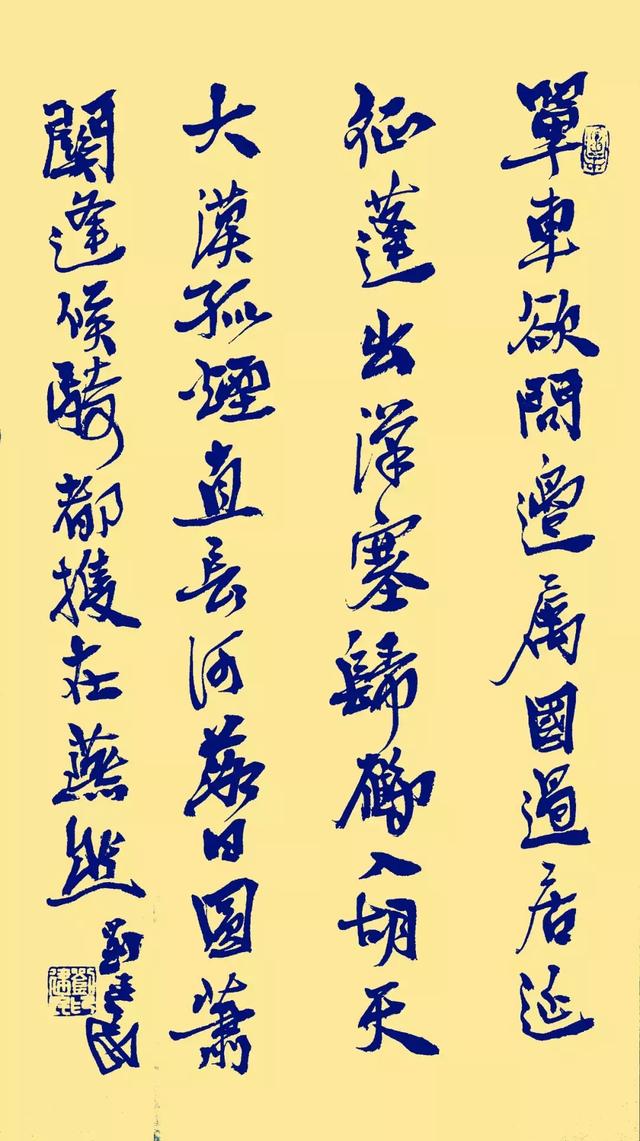 單車欲問邊屬國過居延
征蓬出漢塞歸鴈入胡天
大漠孤煙直長河落日圓蕭
關逢候騎都護在燕然
劉建民